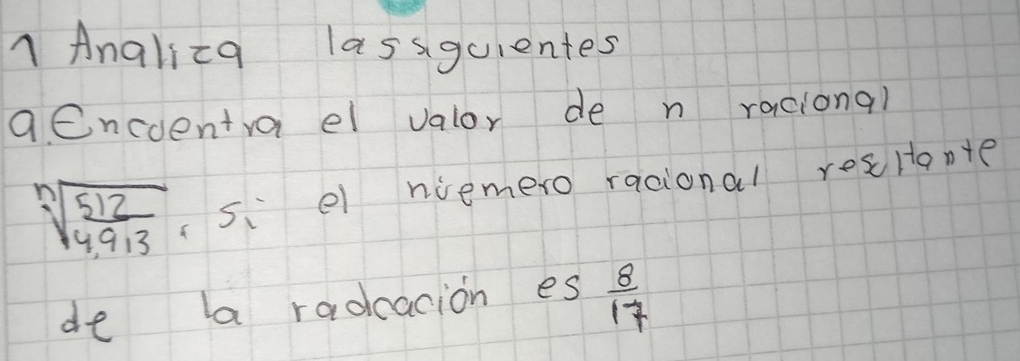 1 Analiza las siguientes
a. Encuentra el valor de n racional
ⁿ√(512/4,913), si el niemero racional resultante
de la radcación es 8/17